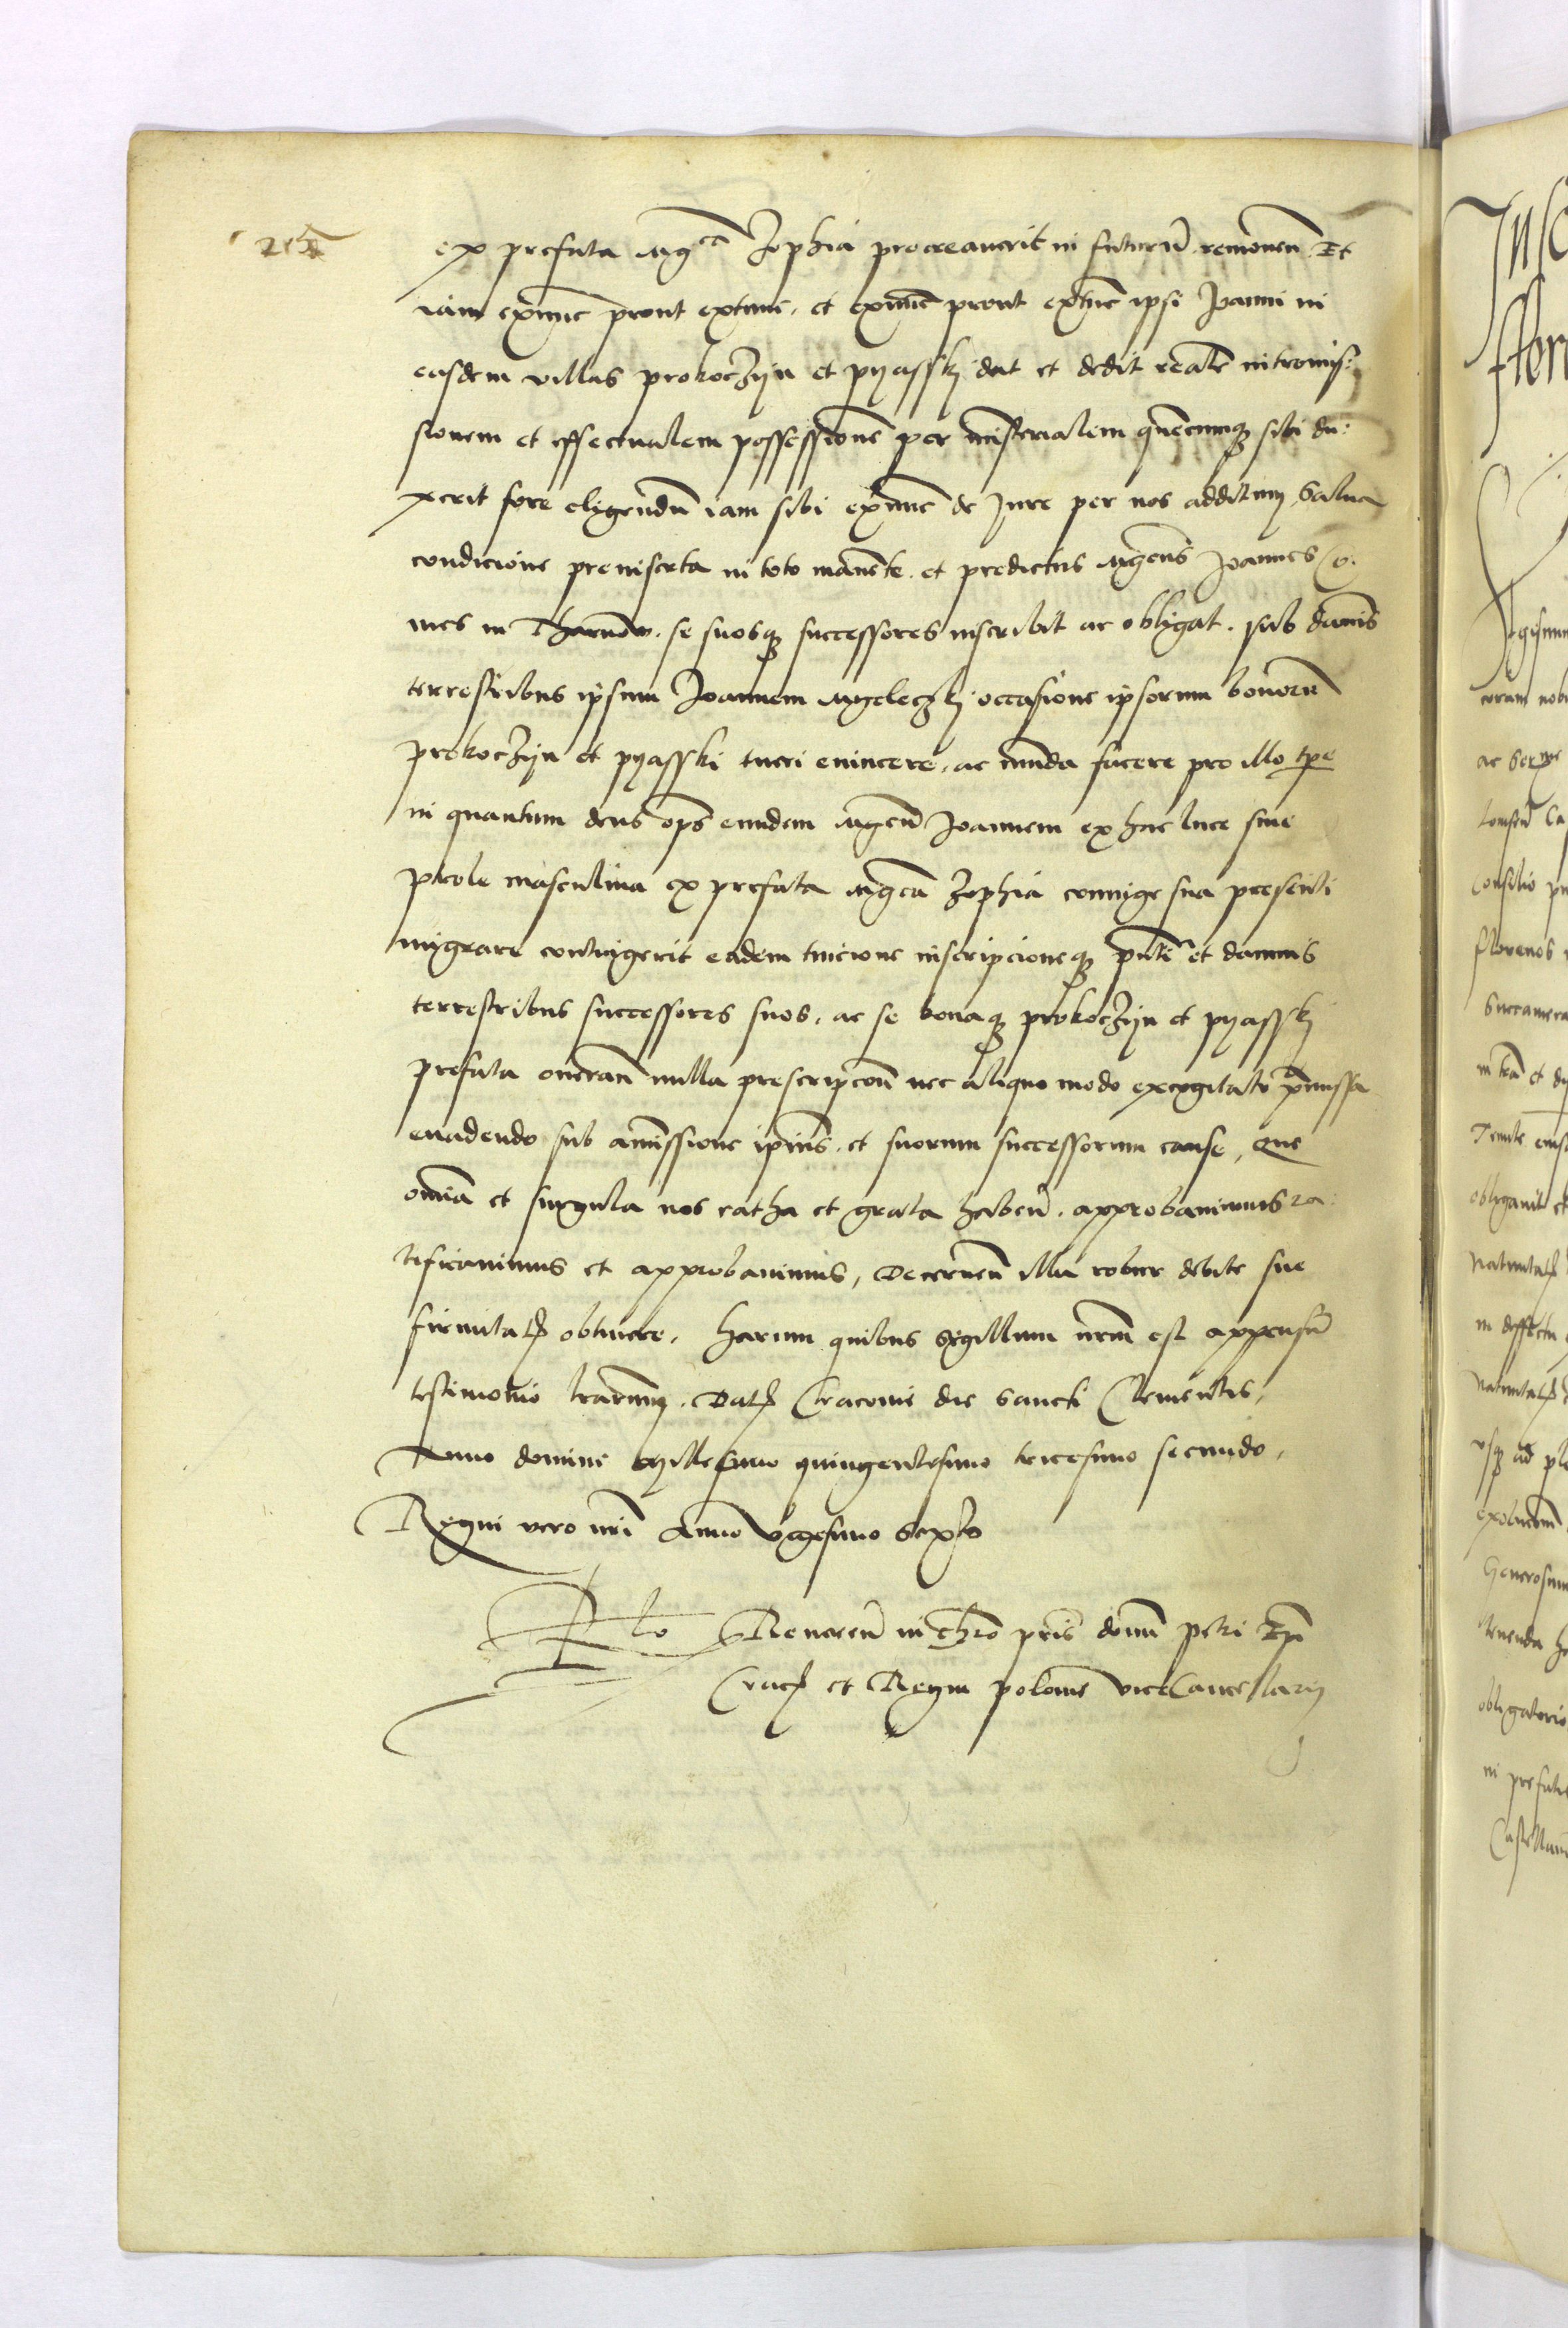 ex prefata Mgca Zophia procreauerit in futurum remouen Et
iam exnunc prout extunc, et extunc prout exnunc ipsi Joanni in
easdem villas prokoczyn et pyassky dat et dedit realem intromis:
sionem et effectualem possessionem per ministerialem quemcumque sibi du:
xerit fore eligendum iam sibi exnunc de Jure per nos additum, Salua
condicione preinserta in toto manente. et predictus Mgcus Joannes Co:
mes in Tharnow. se suosque successores inscribit ac obligat. sub damnis
terrestribus ipsum Joannem Mycleczky occasione ipsorum bonorum
prokoczyn et pyasski tueri euincere, ac munda facere pro illo tpe
in quantum deus ops eundem Mgcum Joannem ex hac luce sine
prole masculina ex prefata Mgca Zophia coniuge sua presenti
migrare contingerit eadem tuicione inscripcioneque pnti et damnis
terrestribus successores suos, ac se bonaque prokoczyn et pyassky
prefata oneran nulla prescripcione nec aliquo modo excogitato premissa
euadendo sub amissione ipius et suorum successorum cause, Que
omnia et singula nos ratha et grata haben. approbauimus ra:
tificauimus et approbauimus, Decernen illa robur debite sue
firmitatis obtinere, Harum quibus Sigillum nrm est appensum
testimonio lrarum. Datum Cracouie die Sancti Clementis,
Anno domini Millesimo quingentesimo tricesimo secundo,
Regni vero nri Anno vigesimo Sexto
Rlo Reueren in Chro pris domini petri Epi
Crac et Regni polonie viceCancellarij
Sigismun
ac
florenos
Consilio
in defectu
obligatorio